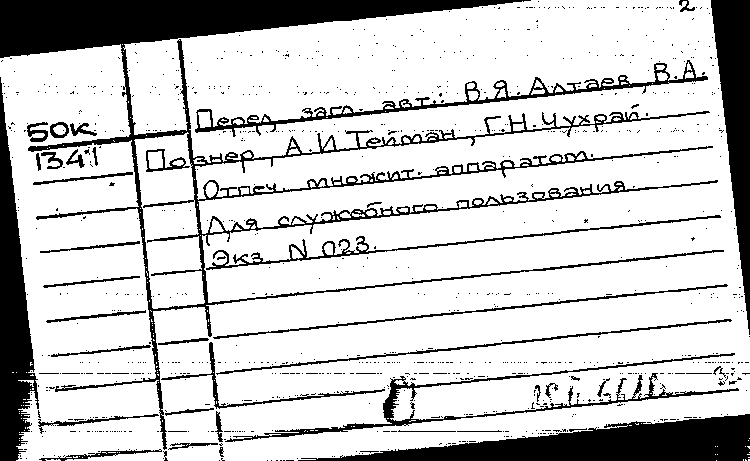 2
Перед загл. авт.: В.Я. Алтаев, В.А.
50к
1341
Познер, А.И Тейман, Г.Н. Чухрай.
Отпеч. множит. аппаратом.
Для служебного пользования.
Экз. N 023.